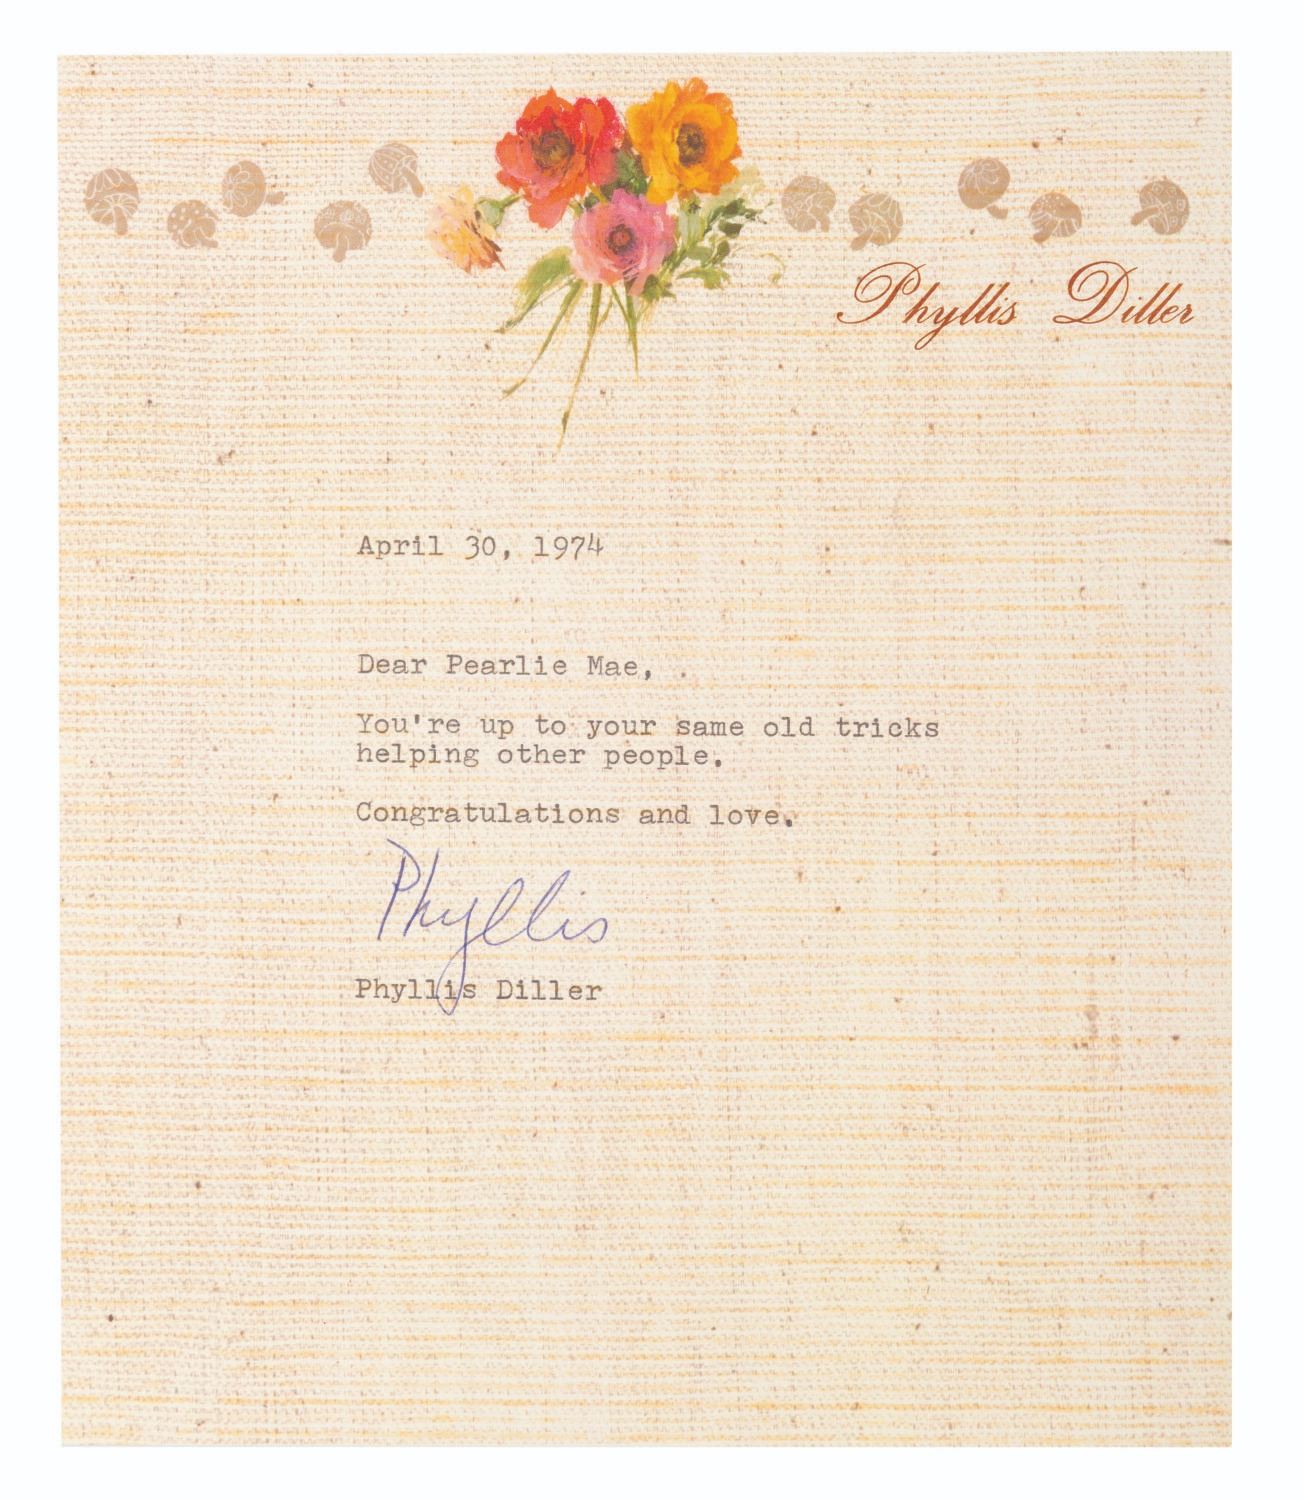 Phyllis Diller
April 30, 1974
Dear Pearlie Mae,
You're up to your same old tricks
helping other people.
Congratulations and love.
Phyllis
Phyllis Diller